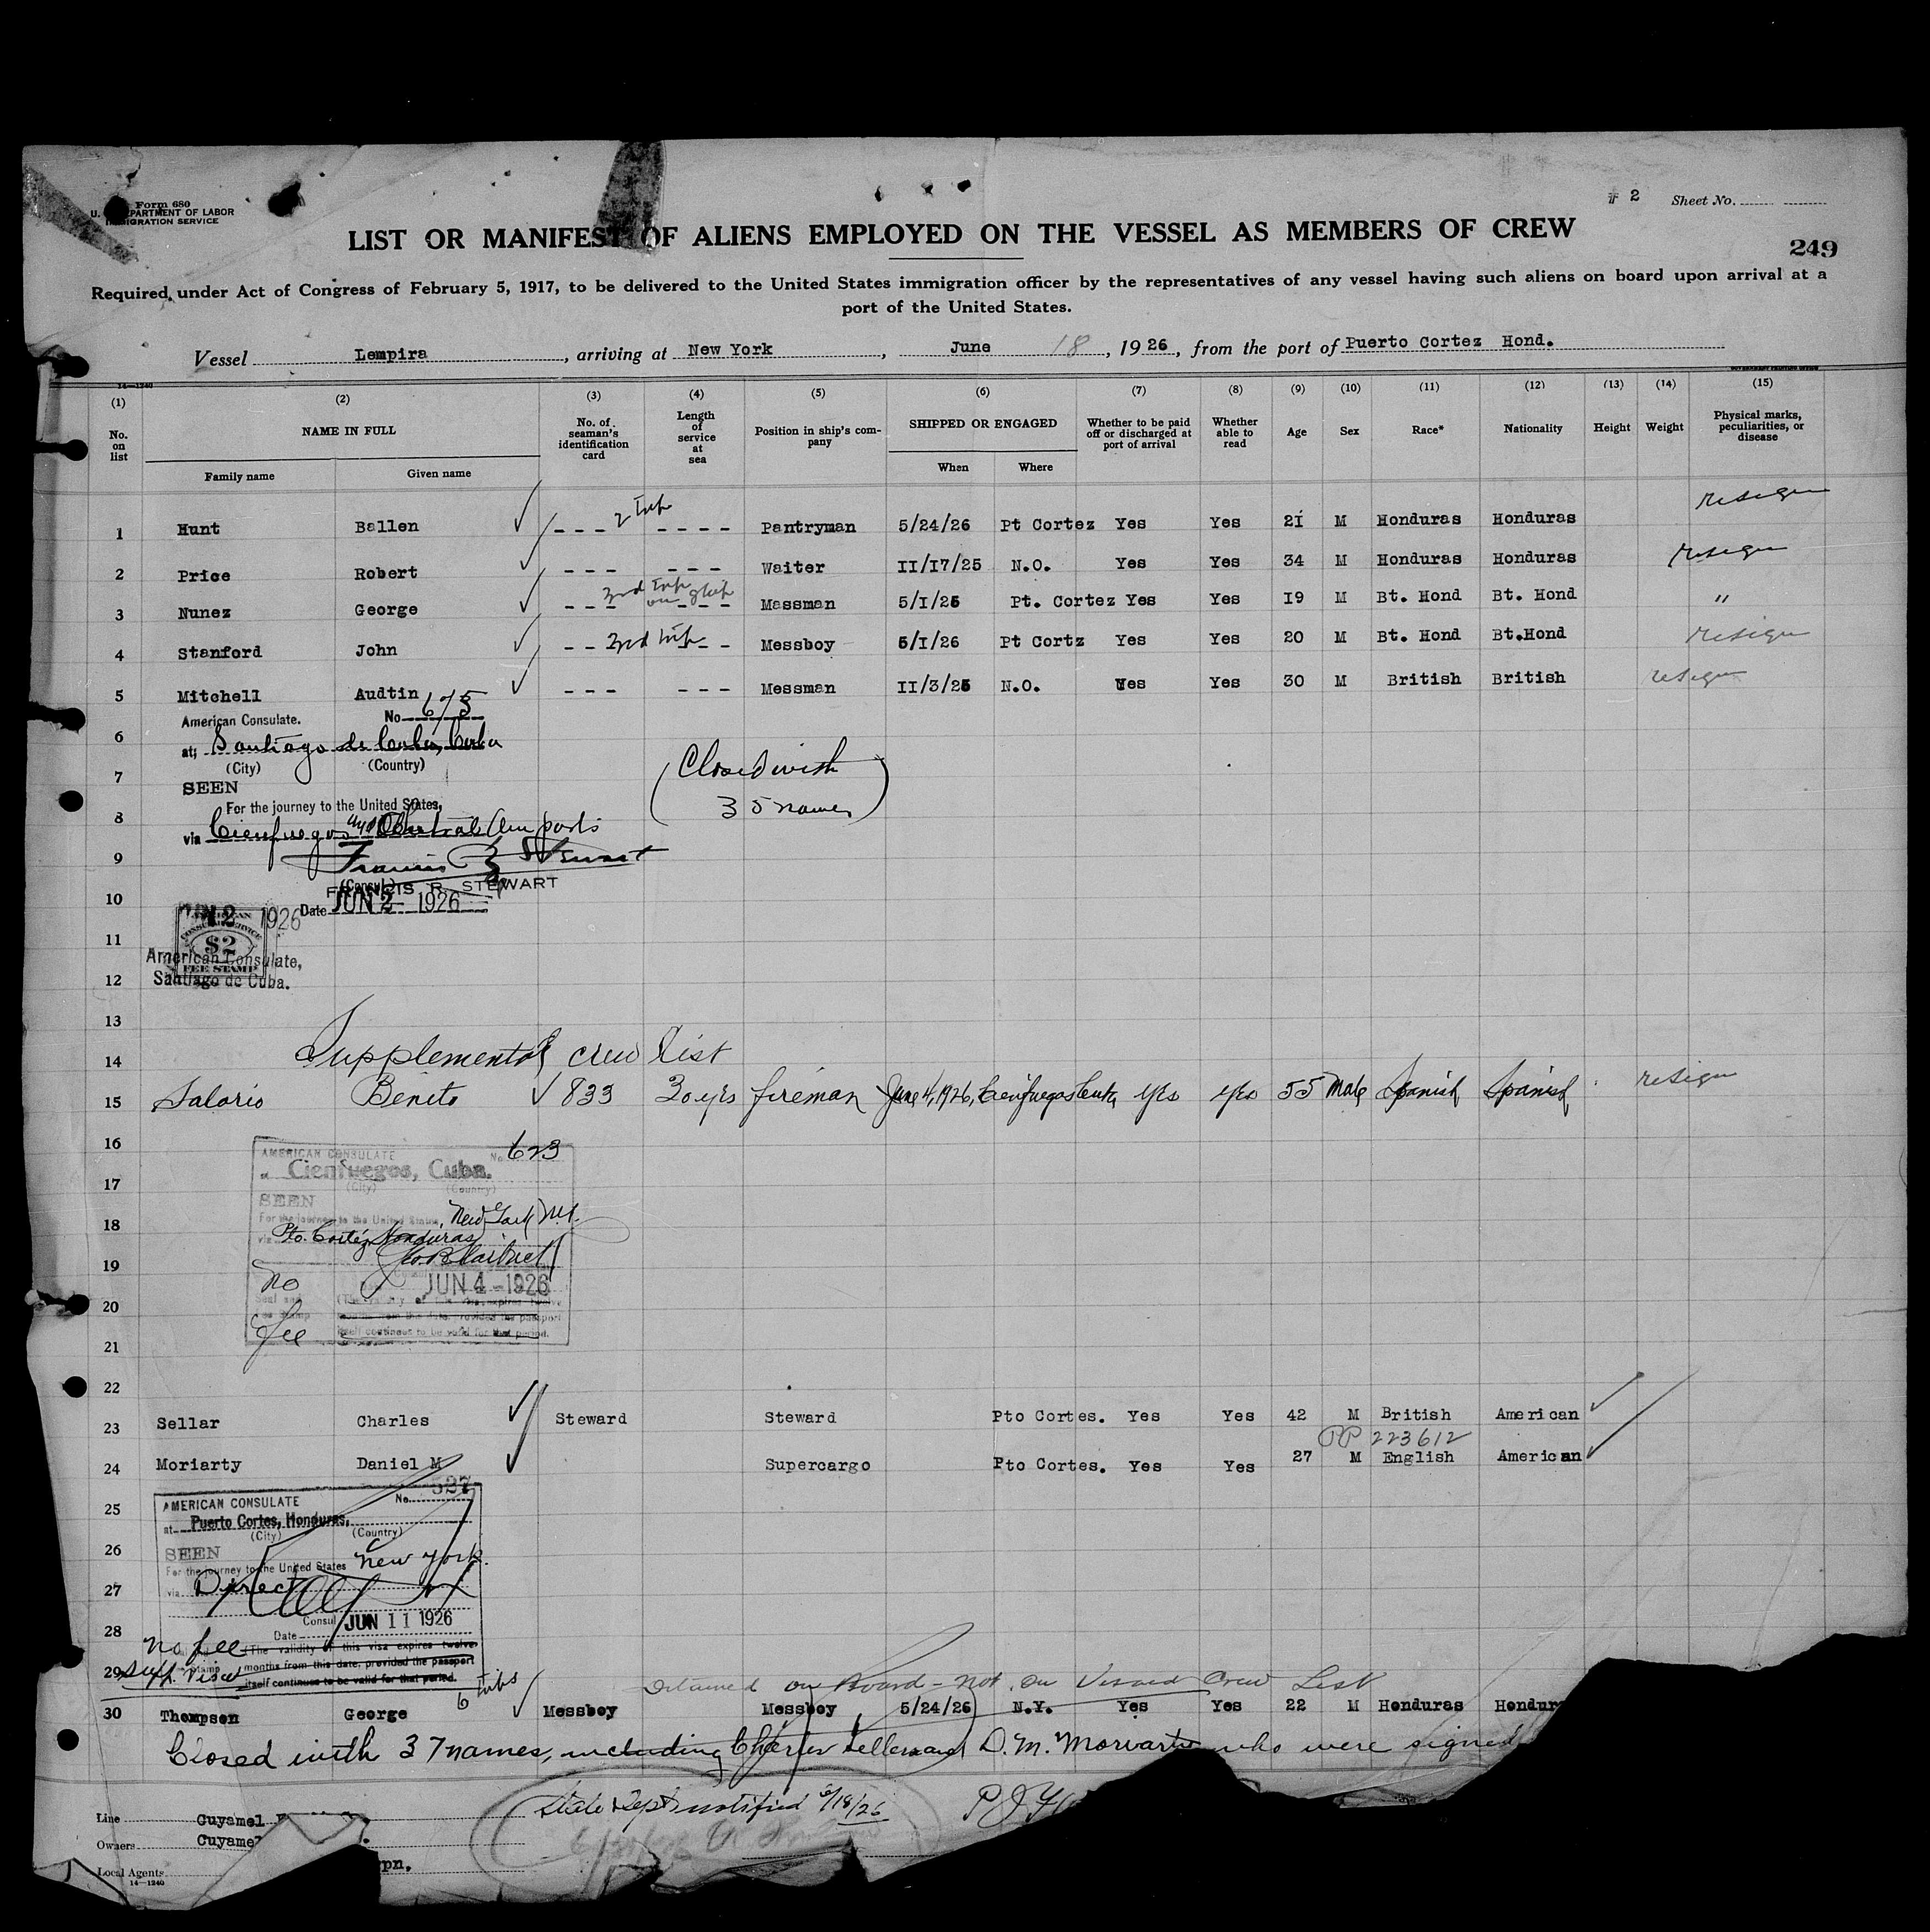 Form 680
U. S. DEPARTMENT OF LABOR
IMMIGRATION SERVICE
# 2 Sheet No.
249
LIST OR MANIFEST OF ALIENS EMPLOYED ON THE VESSEL AS MEMBERS OF CREW
Required under Act of Congress of February 5, 1917, to be delivered to the United States immigration officer by the representatives of any vessel having such aliens on board upon arrival at a
port of the United States.
Vessel Lempira, arriving at New York, June 18, 1926, from the port of Puerto Cortez Hond.
14—1240
(1) (2) (3) (4) (5) (6) (7) (8) (9) (10) (11) (12) (13) (14) (15)
No. on list NAME IN FULL No. of seaman's identification card Length of service at sea Position in ship's company SHIPPED OR ENGAGED Whether to be paid off or discharged at port of arrival Whether able to read Age Sex Race* Nationality Height Weight Physical marks, peculiarities, or disease
Family name Given name When Where
1 Hunt Ballen ✓ - - - 2 Trip - - - - Pantryman 5/24/26 Pt Cortez Yes Yes 21 M Honduras Honduras resign
2 Price Robert ✓ - - - - - - Waiter II/I7/25 N.O. Yes Yes 34 M Honduras Honduras resign
3 Nunez George ✓ - - - 3rd Trip on ship - - - Massman 5/I/26 Pt. Cortez Yes Yes I9 M Bt. Hond Bt. Hond "
4 Stanford John ✓ - - - 3rd trip - - - Messboy 5/I/26 Pt Cortz Yes Yes 20 M Bt. Hond Bt.Hond resign
5 Mitchell Audtin ✓ - - - - - - Messman II/3/25 N.O. Yes Yes 30 M British British resign
American Consulate. No 675
6
at; Santiago de Cuba, Cuba
(City) (Country)
7
SEEN
(Closed with
35 names)
For the journey to the United States,
8
via Cienfuegos and Central Am ports
9
Francis R Stewart
(Consul)
FRANCIS R. STEWART
10
Date JUN 2 - 1926
JUN 2 1926
AMERICAN CONSULAR SERVICE
$2
FEE STAMP
11
American Consulate,
Santiago de Cuba.
12
13
14 Supplemental crew list
15 Salorio Benito ✓ 833 30 yrs fireman June 4, 1926, Cienfuegos Cuba yes yes 55 Male Spanish Spanish resign
16
AMERICAN CONSULATE No. 623
at Cienfuegos, Cuba.
(City) (Country)
17
SEEN
For the journey to the United States, New York N.Y.
18
via Pto. Cortez, Honduras
19
no JUN 4 - 1926
Seal and (The validity of this visa expires twelve
20
fee stamp months from this date, provided the passport
fee itself continues to be valid for that period.
21
22
23 Sellar Charles ✓ Steward Steward Pto Cortes. Yes Yes 42 M British American ✓
PP 223612
24 Moriarty Daniel M ✓ Supercargo Pto Cortes. Yes Yes 27 M English American ✓
25
AMERICAN CONSULATE No. 527
at Puerto Cortes, Honduras,
(City) (Country)
26
SEEN
For the journey to the United States New York.
27
via Direct
Consul
Date JUN 11 1926
28
no fee (The validity of this visa expires twelve
29
stamp months from this date, provided the passport
itself continues to be valid for that period.
6 trips
Detained on Board - Not on Visaed Crew List
30 Thompson George ✓ Messboy Messboy 5/24/26 N.Y. Yes Yes 22 M Honduras Hondura
Closed with 37 names, including Charles Sellar and D. M. Moriarty who were signed
Line Guyamel
State Dept notified 6/18/26
Owners Guyamel
Local Agents
14—1240